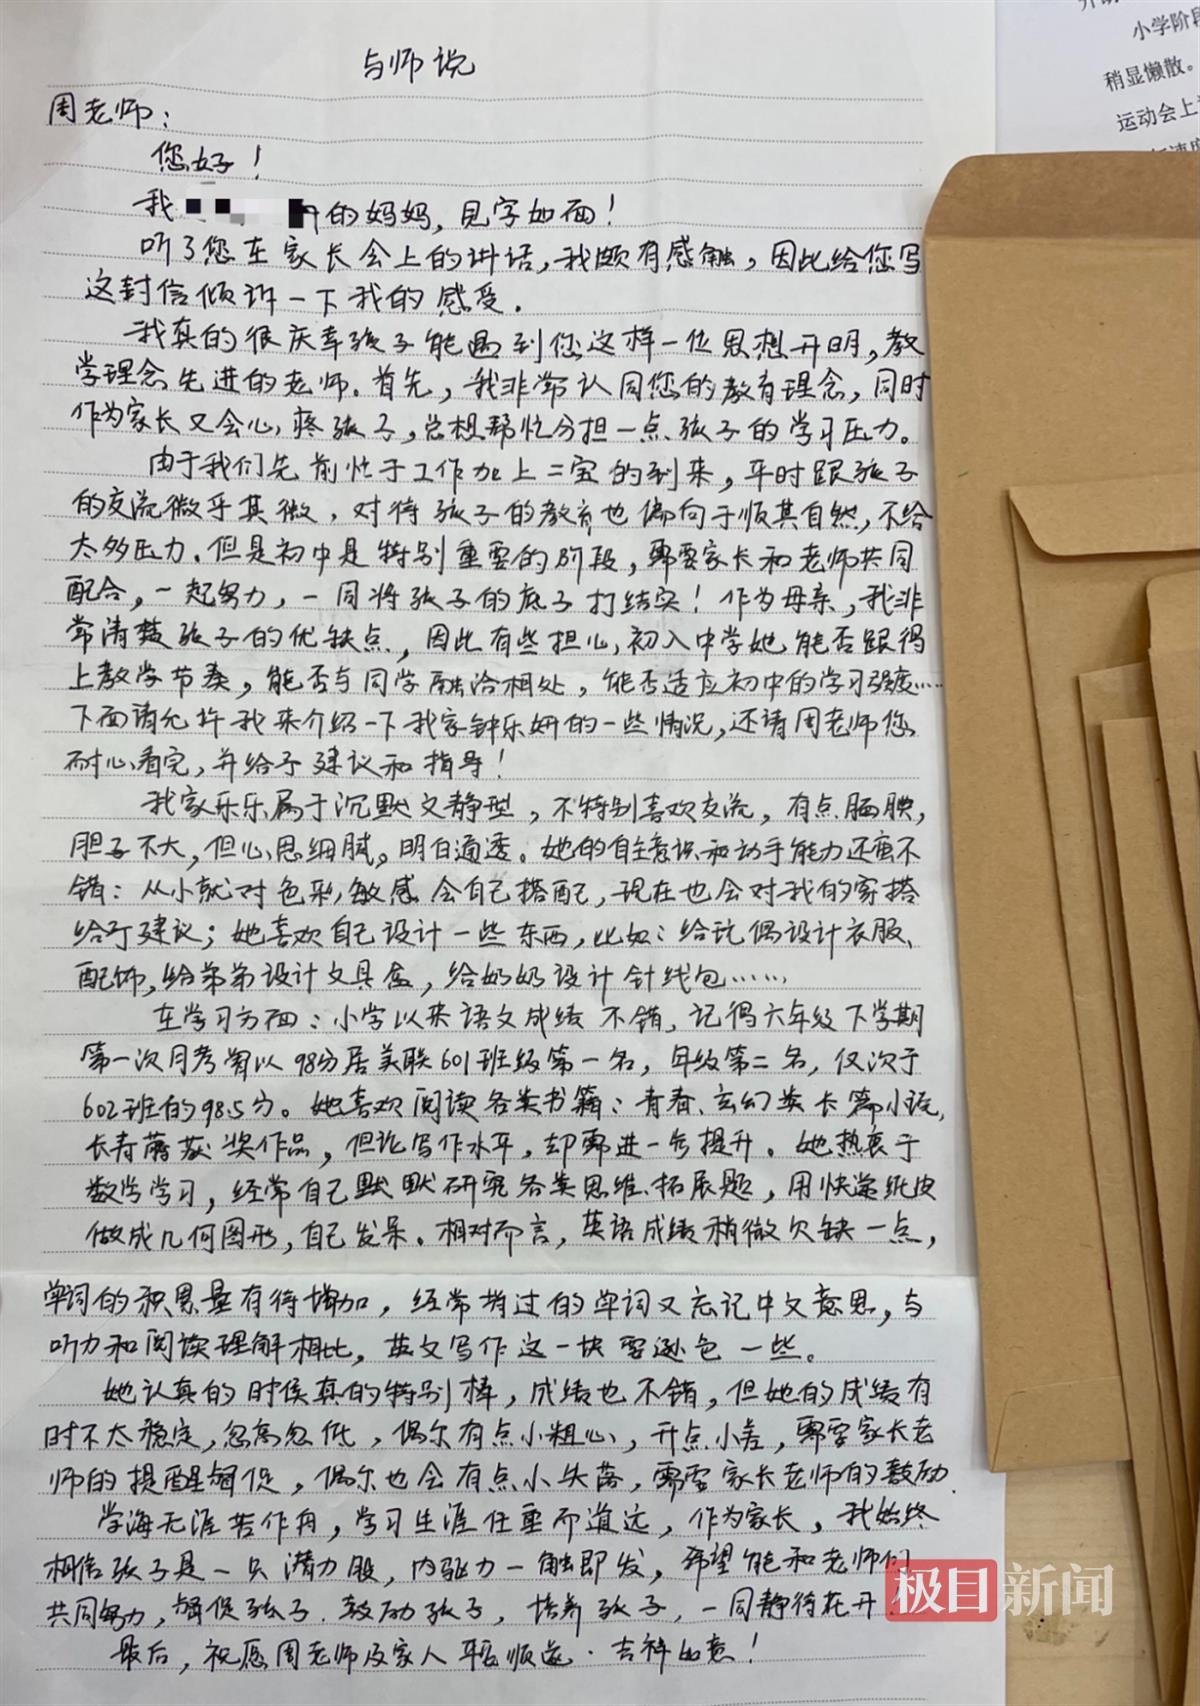 与师说
周老师:
您好!
我 的妈妈,见字如面!
听了您在家长会上的讲话,我颇有感触,因此给您写
这封信倾诉一下我的感受.
我真的很庆幸孩子能遇到您这样一位思想开明,教
学理念先进的老师.首先,我非常认同您的教育理念,同时
作为家长又会心疼孩子,总想帮忙分担一点孩子的学习压力。
由于我们先前忙于工作加上二宝的到来,平时跟孩子
的交流微乎其微,对待孩子的教育也偏向于顺其自然,不给
太多压力.但是初中是特别重要的阶段,需要家长和老师共同
配合,一起努力,一同将孩子的底子打结实!作为母亲,我非
常清楚孩子的优缺点,因此有些担心,初入中学她能否跟得
上教学节奏,能否与同学融洽相处,能否适应初中的学习强度……
下面请允许我来介绍一下我家钟乐妍的一些情况,还请周老师您
耐心看完,并给予建议和指导!
我家乐乐属于沉默文静型,不特别喜欢交流,有点腼腆,
胆子不大,但心思细腻,明白通透。她的自主意识和动手能力还蛮不
错:从小就对色彩敏感会自己搭配,现在也会对我的穿搭
给予建议;她喜欢自己设计一些东西,比如:给玩偶设计衣服、
配饰,给弟弟设计文具盒,给奶奶设计针线包……
在学习方面:小学以来语文成绩不错,记得六年级下学期
第一次月考曾以98分居美联601班级第一名,年级第二名,仅次于
602班的98.5分。她喜欢阅读各类书籍:青春、玄幻类长篇小说,
长寿 获奖作品,但论写作水平,却需进一步提升。她热衷于
数学学习,经常自己默默研究各类思维、拓展题,用快递纸皮
做成几何图形,自己发呆.相对而言,英语成绩稍微欠缺一点,
单词的积累量有待增加,经常背过的单词又忘记中文意思,与
听力和阅读理解相比,英文写作这一块要逊色一些。
她认真的时候真的特别棒,成绩也不错,但她的成绩有
时不太稳定,忽高忽低,偶尔有点小粗心,开点小差,需要家长老
师的提醒督促,偶尔也会有点小失落,需要家长老师的鼓励.
学海无涯苦作舟,学习生涯任重而道远,作为家长,我始终
相信孩子是一只潜力股,内驱力一触即发,希望能和老师们
共同努力,督促孩子.鼓励孩子,培养孩子,一同静待花开
最后,祝愿周老师及家人平安顺遂.吉祥如意!
小学阶段
稍显懒散。
运动会上
极目新闻